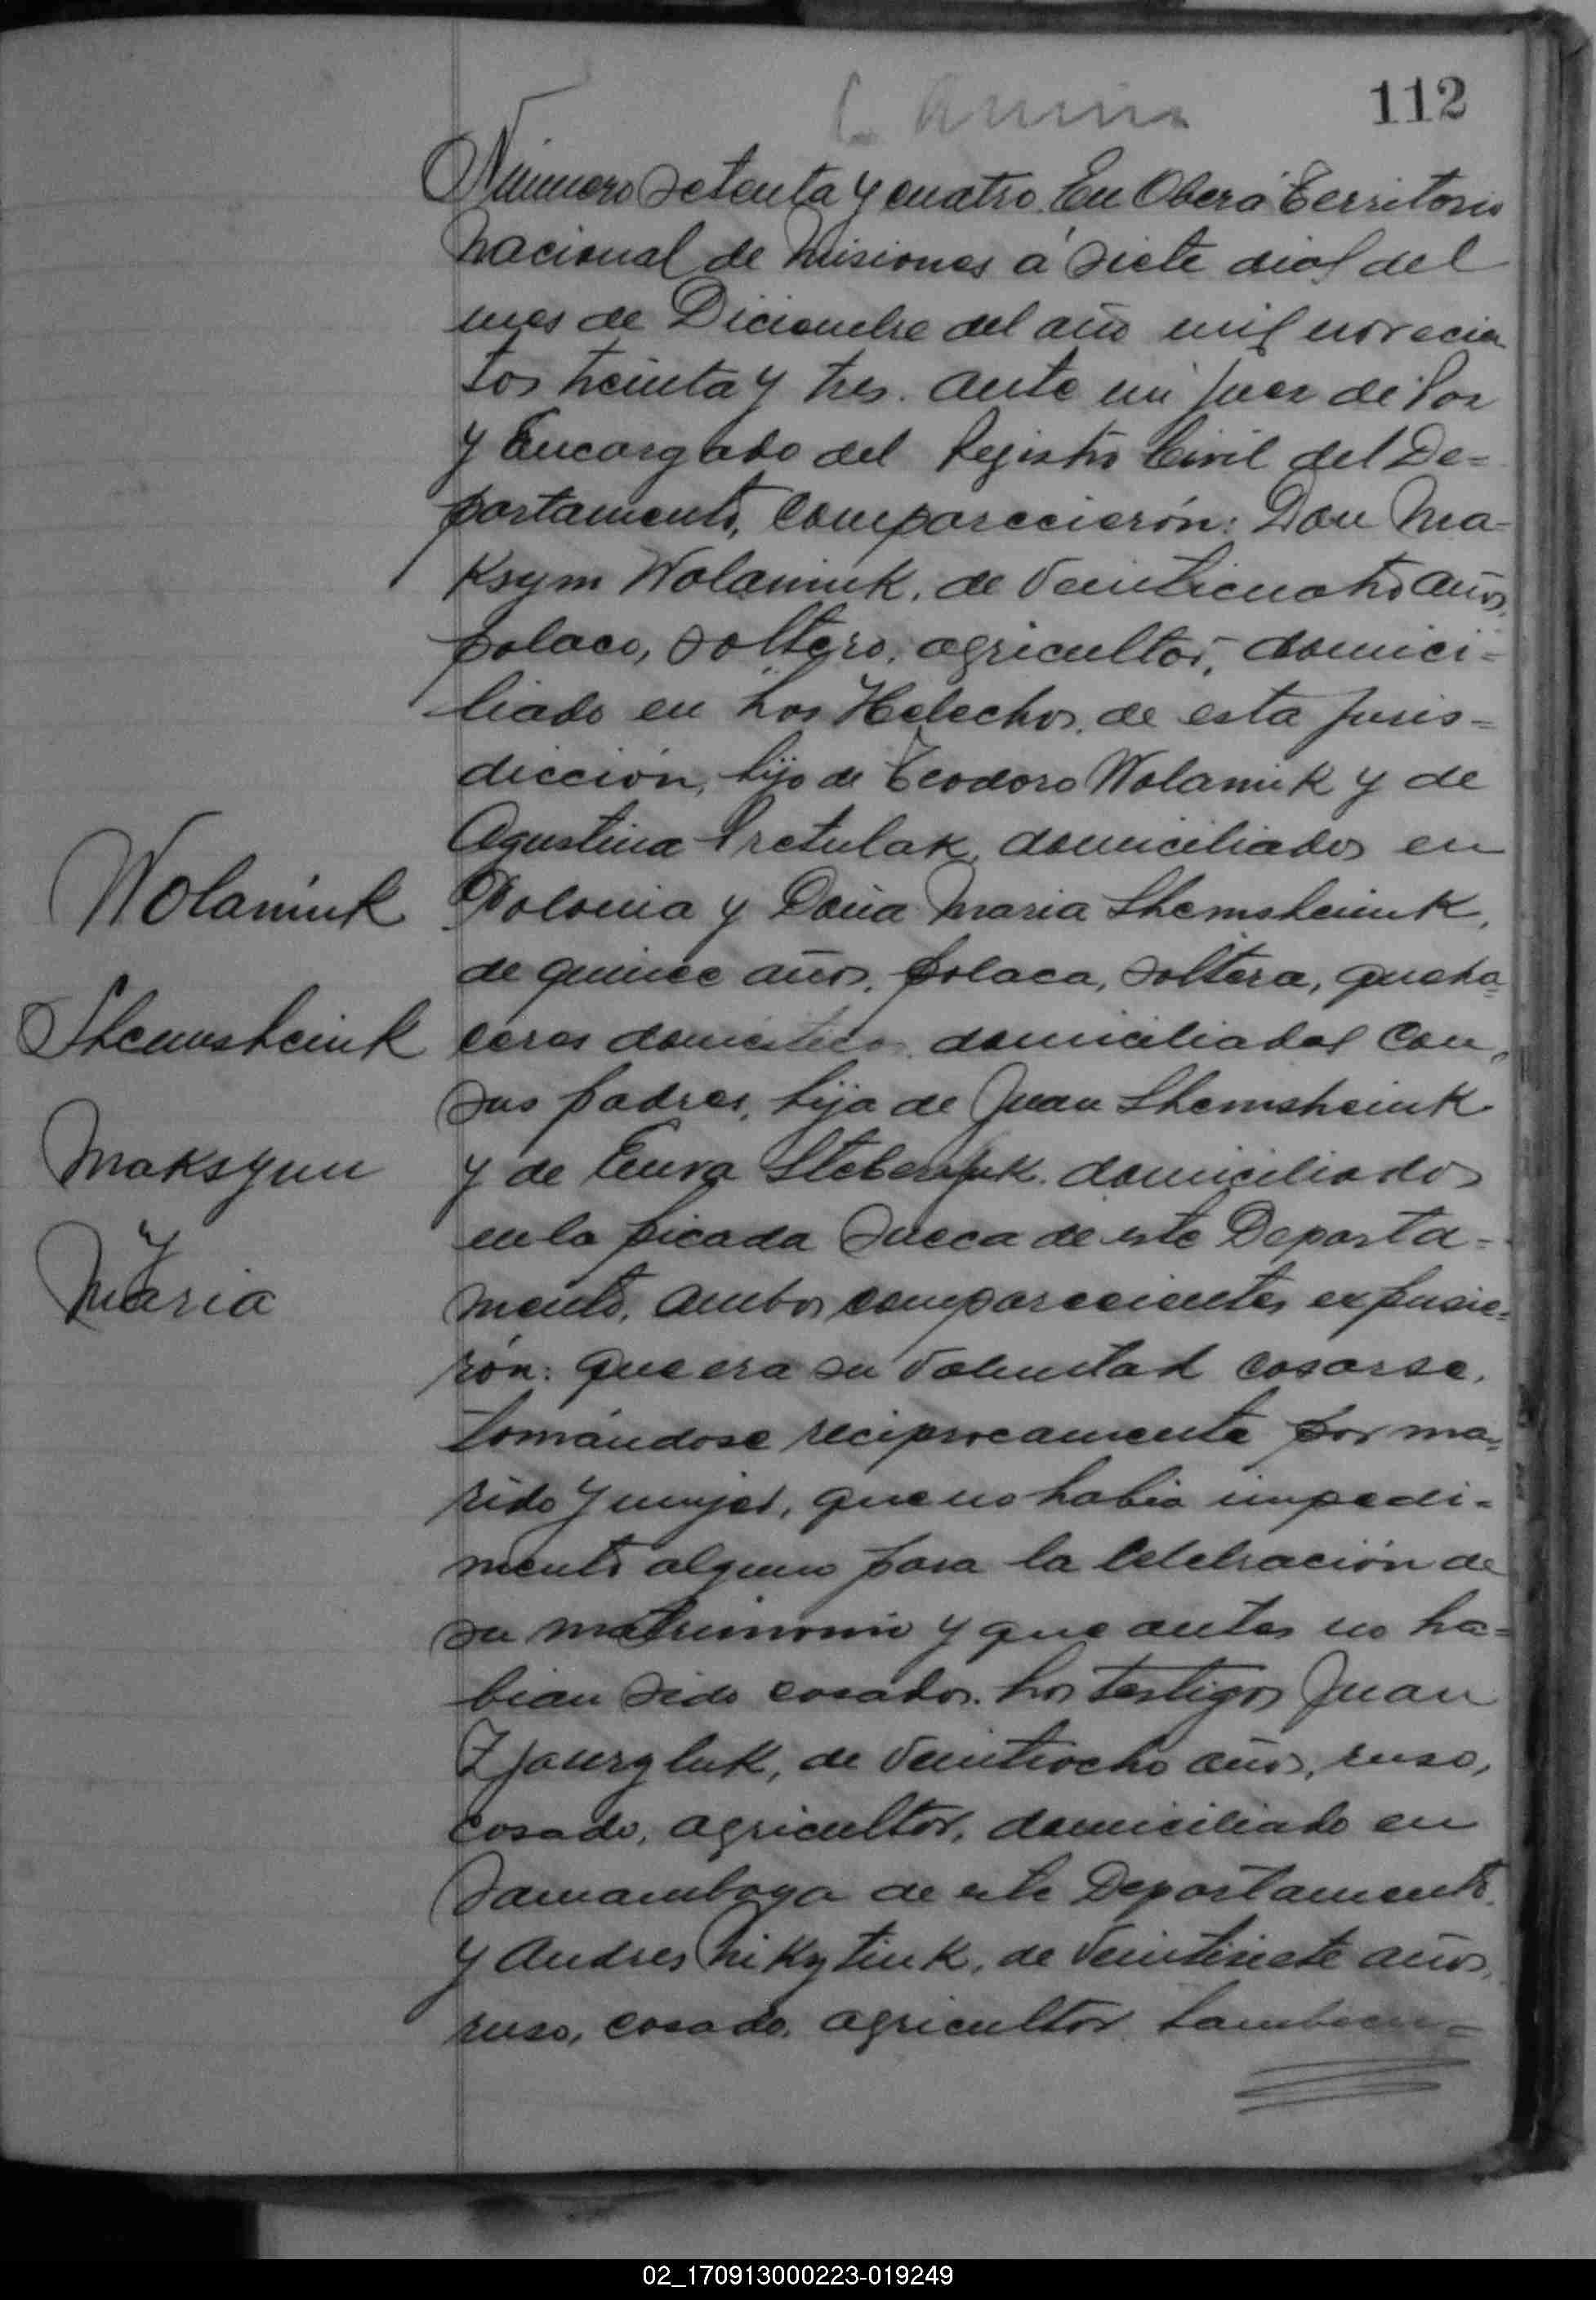 112
Número Setenta y cuatro. En Oberá Territorio
Nacional de Misiones a siete dias del
mes de Diciembre del año mil novecien
tos treinta y tres. ante mi Juez de Paz
y Encargado del Registro Civil del De=
partamento, comparecierón: Don Ma-
Ksym Wolaniuk, de veinticuatro años,
polaco, soltero, agricultor, domici=
liado en Los Helechos, de esta juris=
dicción, hijo de Teodoro Wolaniuk y de
Agustina Pretulak, domiciliados en
Wolaniuk
Polonia y Doña Maria Shemsheiuk,
de quince años, polaca, soltera, queha=
Shemsheiuk
ceres domésticos, domiciliadas con
sus padres, hija de Juan Shemsheiuk
Maksym
y de domiciliados
en la picada Sueca de este Departa=
y
Maria
mento. Ambos comparecientes expusie=
rón: que era su voluntad casarse,
tomándose reciprocamente por ma=
rido y mujer, que no habia impedi=
mento alguno para la celebración de
su matrimonio y que antes no ha=
bian sido casados. Los testigos Juan
de veintiocho años, ruso,
casado, agricultor, domiciliado en
Samambaya de este Departamento.
y Andres Nikytiuk, de veintisiete años,
ruso, casado, agricultor tambien=
02_170913000223-019249